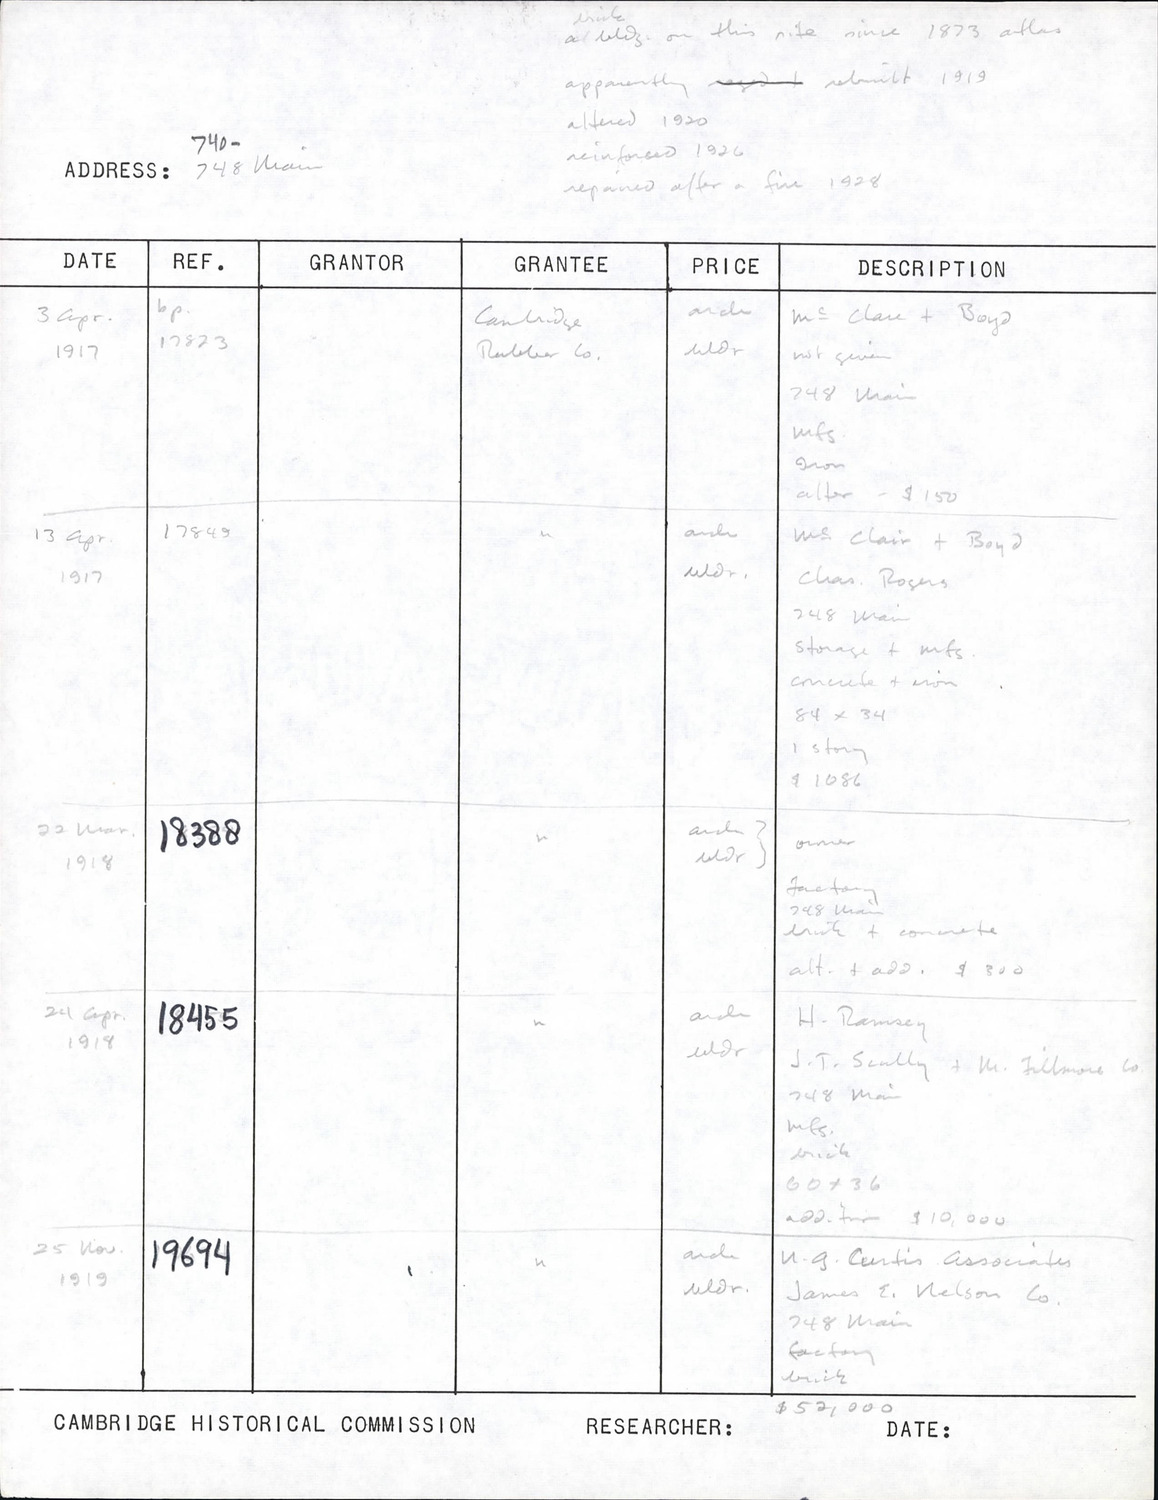 brick
a bldg. on this site since 1873 atlas
apparently razed + rebuilt 1919
altered 1920
reinforced 1926
repaired after a fire 1928
740-
ADDRESS: 748 Main
DATE REF. GRANTOR GRANTEE PRICE DESCRIPTION
3 Apr. bp. Cambridge arch Mc Clare + Boyd
1917 17823 Rubber Co. bldr not given
748 Main
mfg.
Iron
alter - $150
13 Apr. 17849 " arch Mc Clair + Boyd
1917 bldr. Chas. Rogers
748 Main
storage + mfg.
concrete + iron
84 x 34
1 story
$1086
22 Mar. 18388 " arch } owner
1918 bldr }
factory
748 Main
brick + concrete
alt. + add. $300
24 Apr. 18455 " arch H. Ramsey
1918 bldr J.T. Scully + M. Fillmore Co
748 Main
mfg.
brick
60 x 36
$10,000
25 Nov. 19694 " arch N.G. Curtis Associates
1919 bldr. James E. Nelson Co.
748 Main
factory
brick
$52,000
CAMBRIDGE HISTORICAL COMMISSION RESEARCHER: DATE: